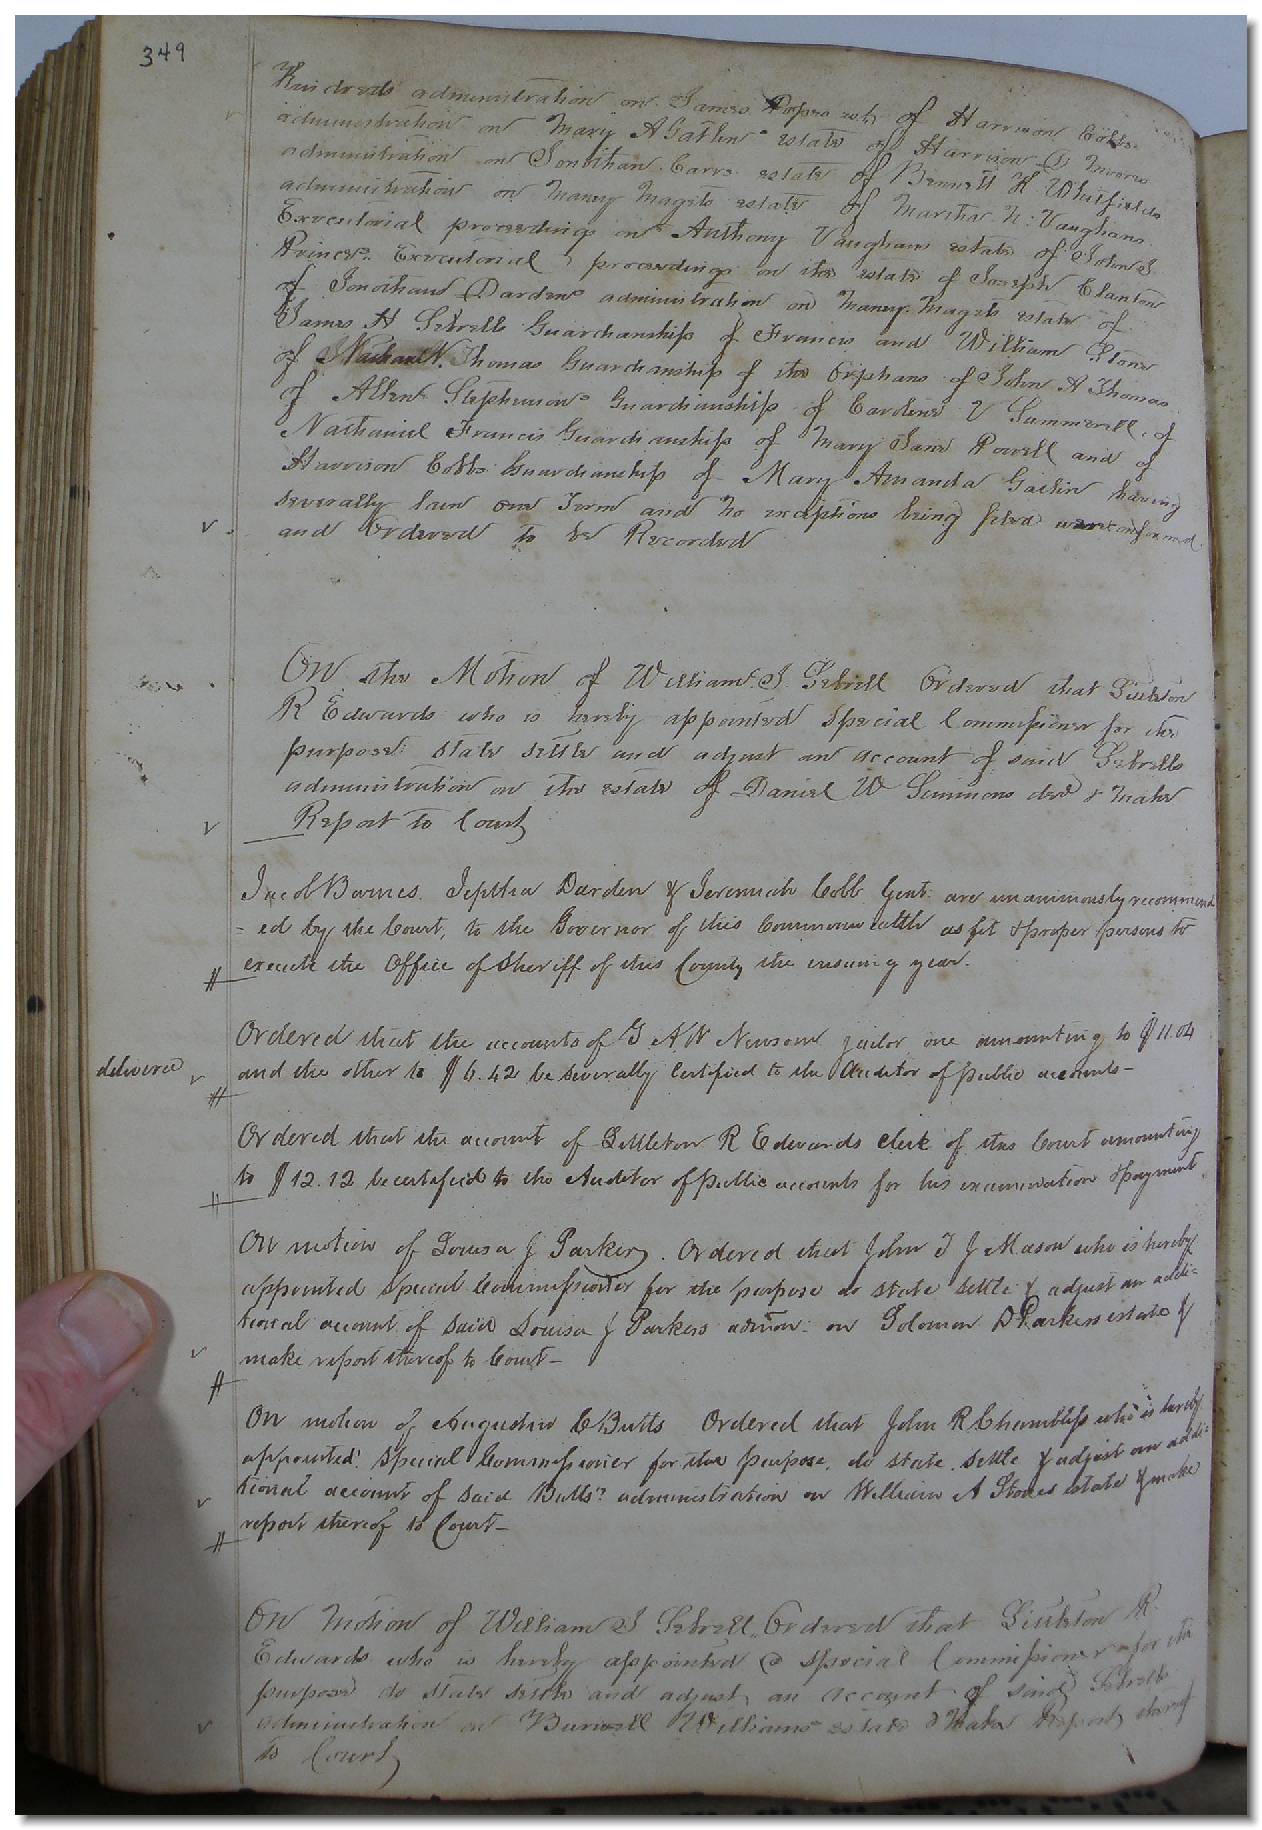 349
Kindreds administration on James Popes est. of Harrison Cobbs
administration on Mary A Gatlin's estate of Harrison D
administration on Jonathan Carrs estate of Bennett H Whitfields
administration on Maney Magets estate of Martha N. Vaughans
Executorial proceedings on Anthony Vaughans estate of John J.
Princes. Executorial proceedings on the estate of Joseph Clanton
of Jonathan Dardens administration on Maney Magets estate of
James H Sebrells Guardianship of Frances and William Stone
of Thomas Guardianship of the Orphans of John A Thomas
of Allen Stephenson's Guardianship of Caroline V Summerell, of
Nathaniel Francis Guardianship of Mary Jane Powell and of
Harrison Cobbs Guardianship of Mary Amanda Gatlin having
severally lain one Term and no exceptions being filed were confirmed
and Ordered to be Recorded
On the Motion of William J. Sebrell Ordered that Littleton
R Edwards who is hereby appointed Special Commissioner for the
purpose: state settle and adjust an account of said Sebrells
administration on the estate of Daniel W Simmons decd & make
Report to Court
Jacob Barnes. Jeptha Darden & Jeremiah Cobb Gent. are unanimously recommend
- ed by the Court, to the Governor of this Commonwealth as fit & proper persons to
execute the Office of Sheriff of this County the ensuing year.
Ordered that the accounts of G A W Newsom jailor one amounting to $11.04
delivered and the other to $6.42 be severally Certified to the Auditor of public accounts-
Ordered that the account of Littleton R Edwards Clerk of this Court amounting
to $12.12 be certified to the Auditor of public accounts for his examination & payment
On motion of Louisa J Parker. Ordered that John T J Mason who is hereby
appointed Special Commissioner for the purpose do state settle & adjust an addi-
tional account of said Louisa J Parkers admon: on Solomon D Parkers estate &
make report thereof to Court-
On motion of Augustin C Butts Ordered that John R Chambliss who is hereby
appointed Special Commissioner for the purpose, do state, settle & adjust an addi-
tional account of said Butts' administration on William A Stones estate & make
report thereof to Court-
On Motion of William J Sebrell, Ordered that Littleton R.
Edwards who is hereby appointed a special Commissioner for the
purpose do state settle and adjust an account of said Sebrells
administration on Burwell Williams estate & Make Report thereof
to Court